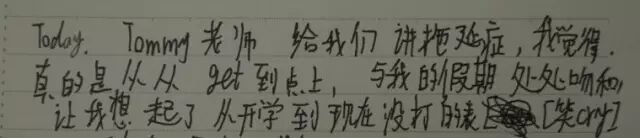 Today. Tommy老师 给我们 讲拖延症，我觉得.
真的是从从 get 到点上，与我的假期 处处吻和,
让我想起了从开学到现在没打的表 [笑cry]